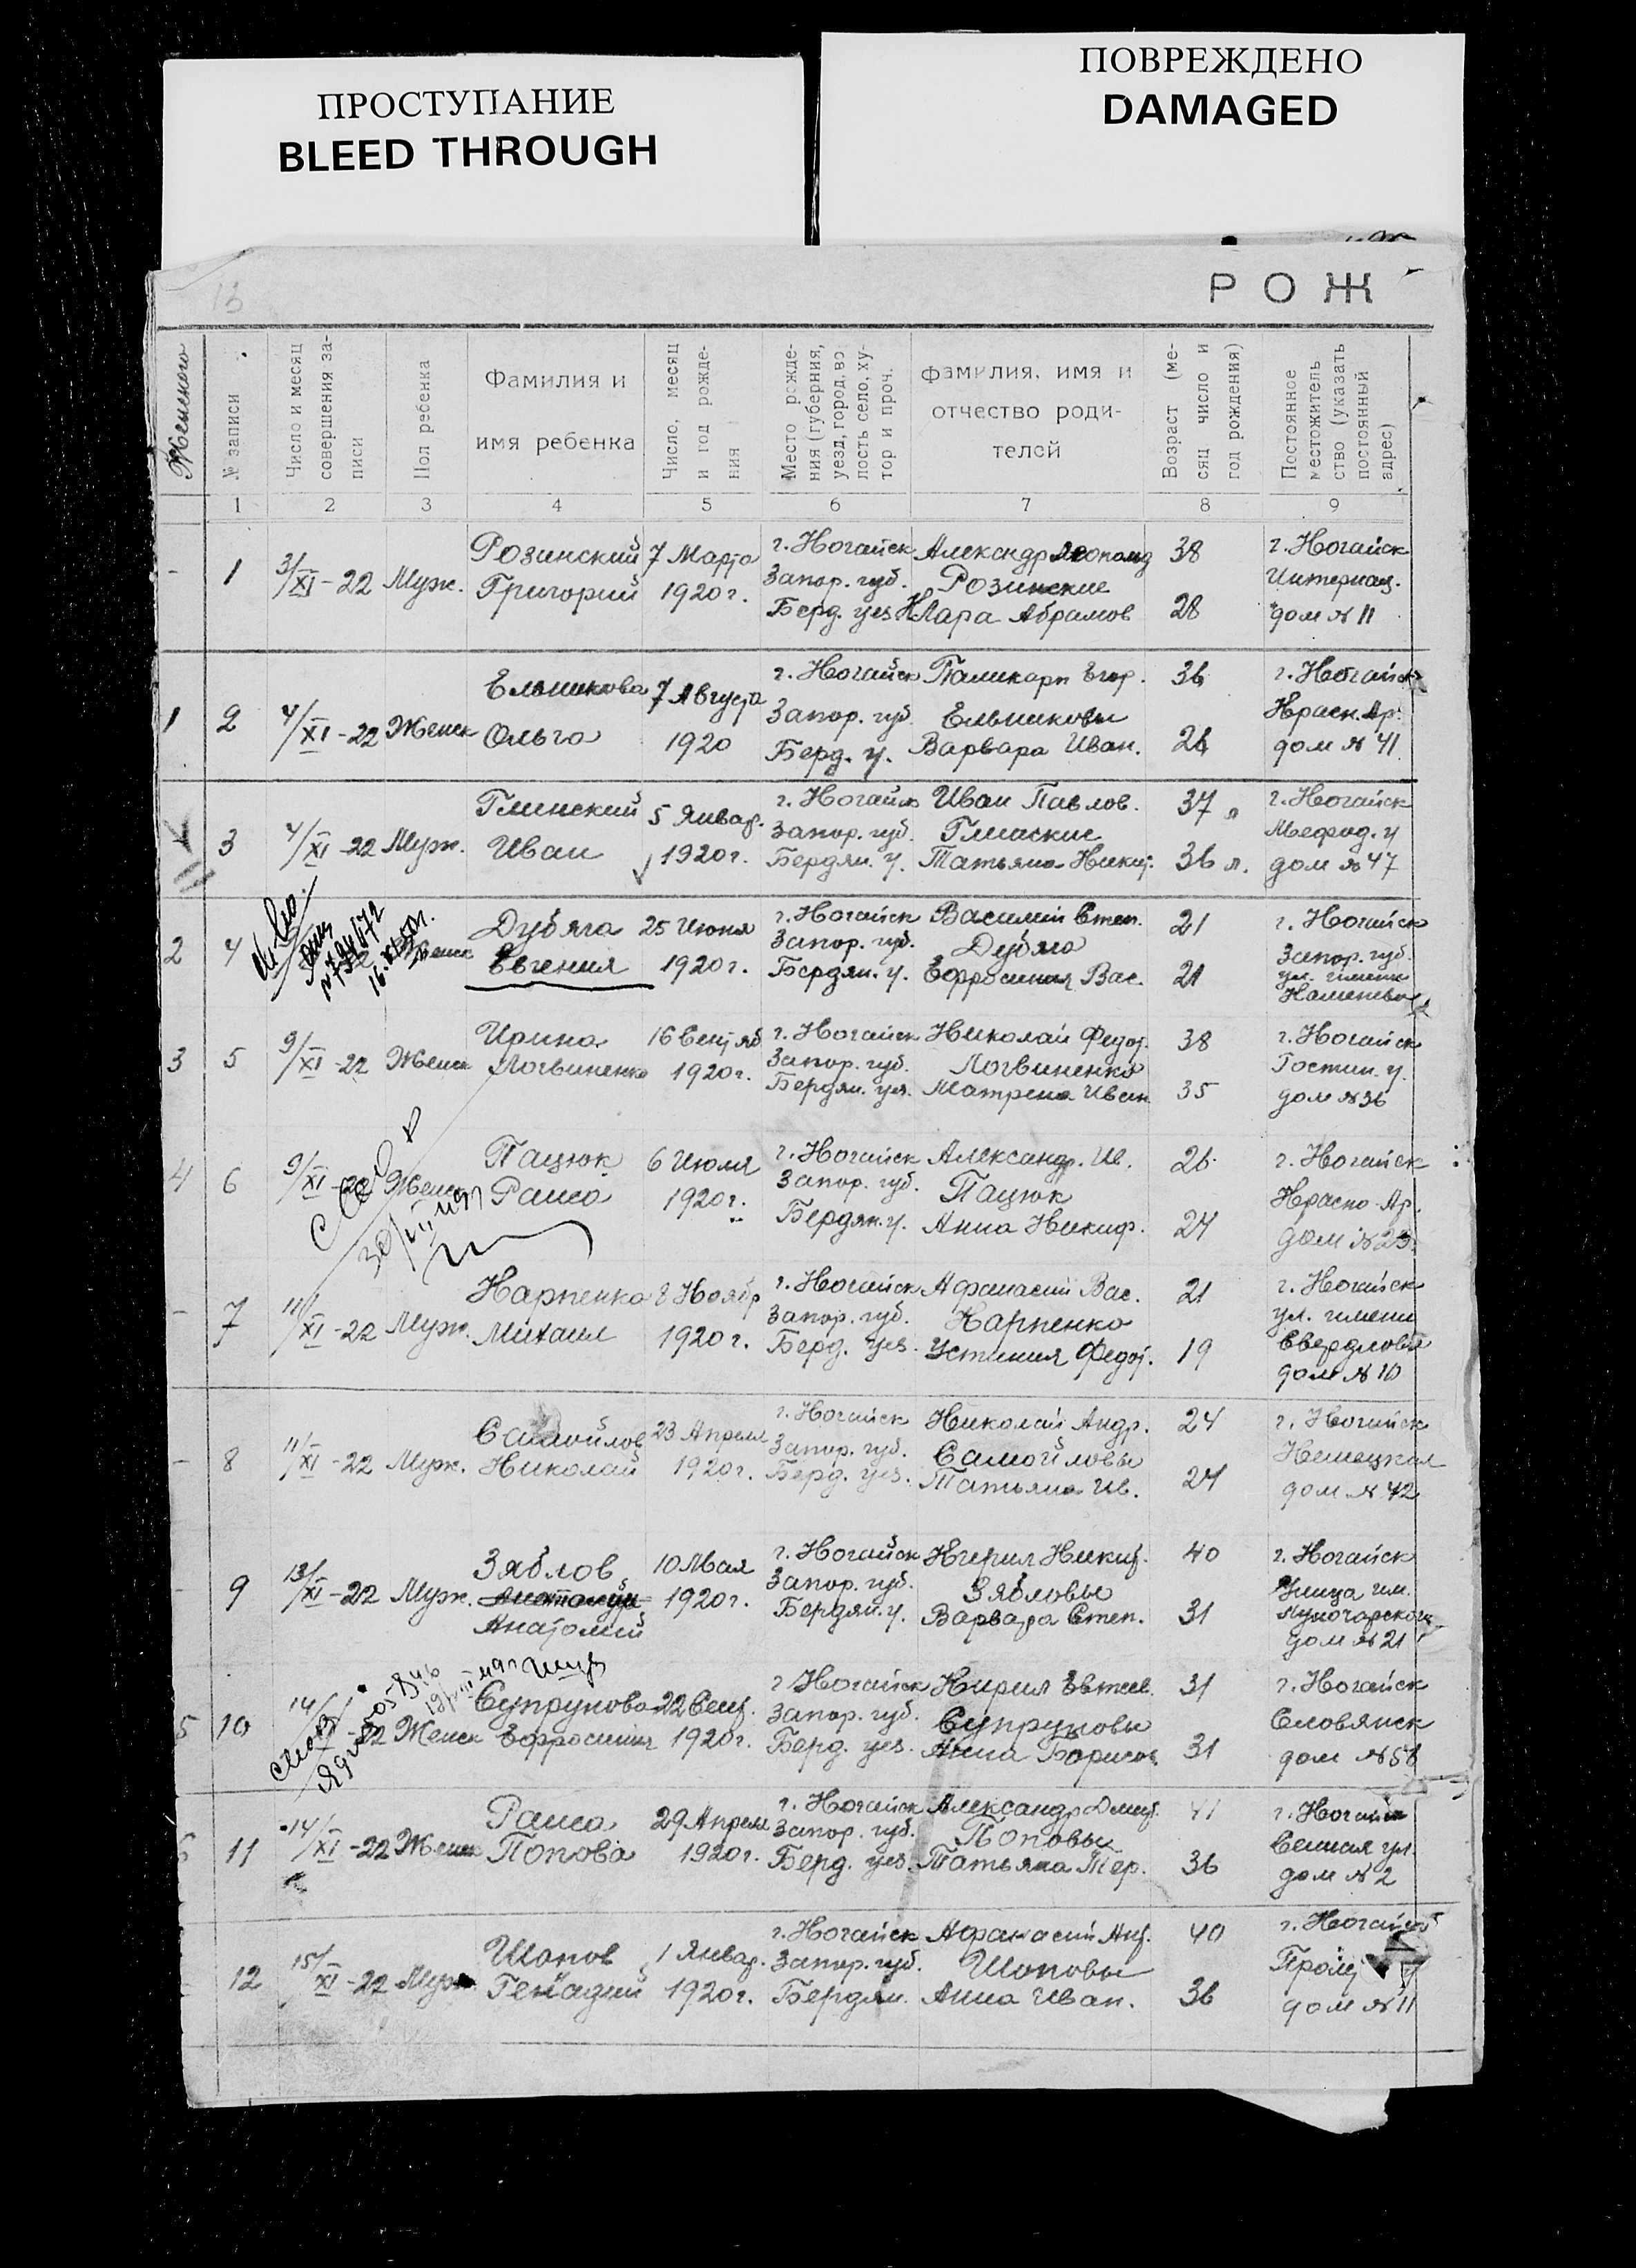 ПРОСТУПАНИЕ
BLEED THROUGH
ПОВРЕЖДЕНО
DAMAGED
13
РОЖ
Женского
№ записи
Число и месяц
совершения за-
писи
Пол ребенка
Фамилия и
имя ребенка
Число, месяц
и год рожде-
ния
Место рожде-
ния (губерния,
уезд, город, во
лость село, ху-
тор и проч.
фамилия, имя и
отчество роди-
телей
Возраст (ме-
сяц число и
год рождения)
Постоянное
местожитель
ство (указать
постоянный
адрес)
1 2 3 4 5 6 7 8 9
- 1 3/XI-22 Муж.
Розинский
Григорий
7 Марта
1920 г.
г. Ногайск
Запор. губ.
Берд. уез
Александр Леопольд
Розинские
Клара Абрамов
38
28
г. Ногайск
Интернац.
дом № 11
1 2 4/XI-22 Женск
Ельникова
Ольга
7 Августа
1920
г. Ногайск
Запор. губ.
Берд. у.
Паликарп Егор.
Ельниковы
Варвара Иван.
36
26
г. Ногайск
Красн. Ар.
дом № 41
3 4/XI-22 Муж.
Глинский
Иван
5 Январ.
1920 г.
г. Ногайск
Запор. губ.
Бердян. у.
Иван Павлов.
Глинские
Татьяна Никиф.
37 л
36 л.
г. Ногайск
Мефод. у
дом № 47
2 4 Женск
16.XI.50г.
Дубяга
Евгения
25 Июня
1920 г.
г. Ногайск
Запор. губ.
Бердян. у.
Василий Степ.
Дубяга
Ефросиния Вас.
21
21
г. Ногайск
Запор. губ.
ул. имени
Каменева
3 5 9/XI-22 Женск
Ирина
Логвиненко
16 Сентяб
1920 г.
г. Ногайск
Запор. губ.
Бердян. уез.
Николай Федор.
Логвиненко
Матрена Иван
38
35
г. Ногайск
Гостин. у.
дом № 36
4 6 9/XI-22 Женск
Пацюк
Раиса
6 Июля
1920 г.
г. Ногайск
Запор. губ.
Бердян. у.
Александр. Ив.
Пацюк
Анна Никиф.
26
24
г. Ногайск
Красно-Ар.
дом № 23
- 7 11/XI-22 Муж.
Карпенко
Михаил
8 Ноябр
1920 г.
г. Ногайск
Запор. губ.
Берд. уез.
Афанасий Вас.
Карпенко
Устиния Федор.
21
19
г. Ногайск
ул. имени
Свердлова
дом № 10
- 8 11/XI-22 Муж.
Самойлов
Николай
23 Апреля
1920 г.
г. Ногайск
Запор. губ.
Берд. уез.
Николай Андр.
Самойловы
Татьяна Ив.
24
24
г. Ногайск
Немецкая
дом № 42
- 9 13/XI-22 Муж.
Зяблов
Анатолий
10 Мая
1920 г.
г. Ногайск
Запор. губ.
Бердян. у.
Кирил Никиф.
Зябловы
Варвара Степ.
40
31
г. Ногайск
Улица им.
Луначарского
дом № 21
5 10 14/XI-22 Женск
Супрунова
Ефросиния
22 Сент.
1920 г.
г Ногайск
Запор. губ.
Берд. уез.
Кирил Евтее.
Супруновы
Анна Борисов
31
31
г. Ногайск
Словянск
дом № 58
6 11 14/XI-22 Женск
Раиса
Попова
29 Апреля
1920 г.
г. Ногайск
Запор. губ.
Берд. уез.
Александр Дмит.
Поповы
Татьяна Тер.
41
36
г. Ногайск
Сенная ул.
дом № 2
- 12 15/XI-22 Муж.
Шопов
Генадий
1 Январ.
1920 г.
г. Ногайск
Запор. губ.
Бердян.
Афанасий Ант.
Шоповы
Анна Иван.
40
36
г. Ногайск
дом № 11